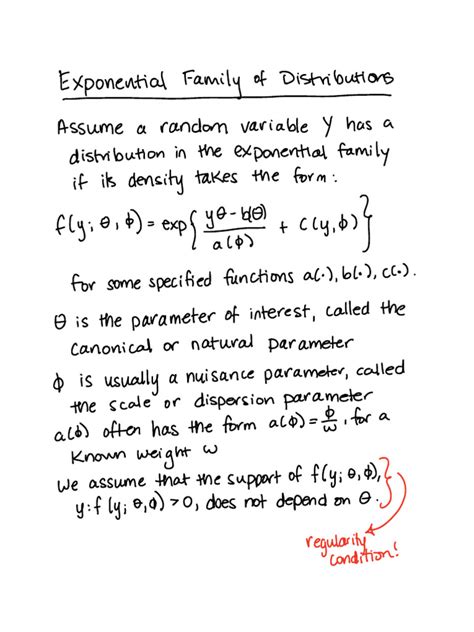 Exponential Family of Distributions
Assume a random variable Y has a
distribution in the exponential family
if its density takes the form:
f(y; θ, ϕ) = exp{ (yθ - b(θ)) / a(ϕ) + c(y, ϕ) }
for some specified functions a(·), b(·), c(·).
θ is the parameter of interest, called the
canonical or natural parameter
ϕ is usually a nuisance parameter, called
the scale or dispersion parameter
a(ϕ) often has the form a(ϕ) = ϕ/ω, for a
known weight ω
We assume that the support of f(y; θ, ϕ),
y: f(y; θ, ϕ) > 0, does not depend on θ.
regularity
condition!